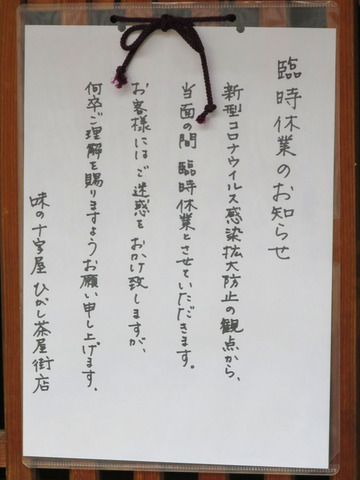 臨時休業のお知らせ
新型コロナウイルス感染拡大防止の観点から、
当面の間 臨時休業とさせていただきます。
お客様にはご迷惑をおかけ致しますが、
何卒ご理解を賜りますようお願い申し上げます。
味の十字屋 ひがし茶屋街店